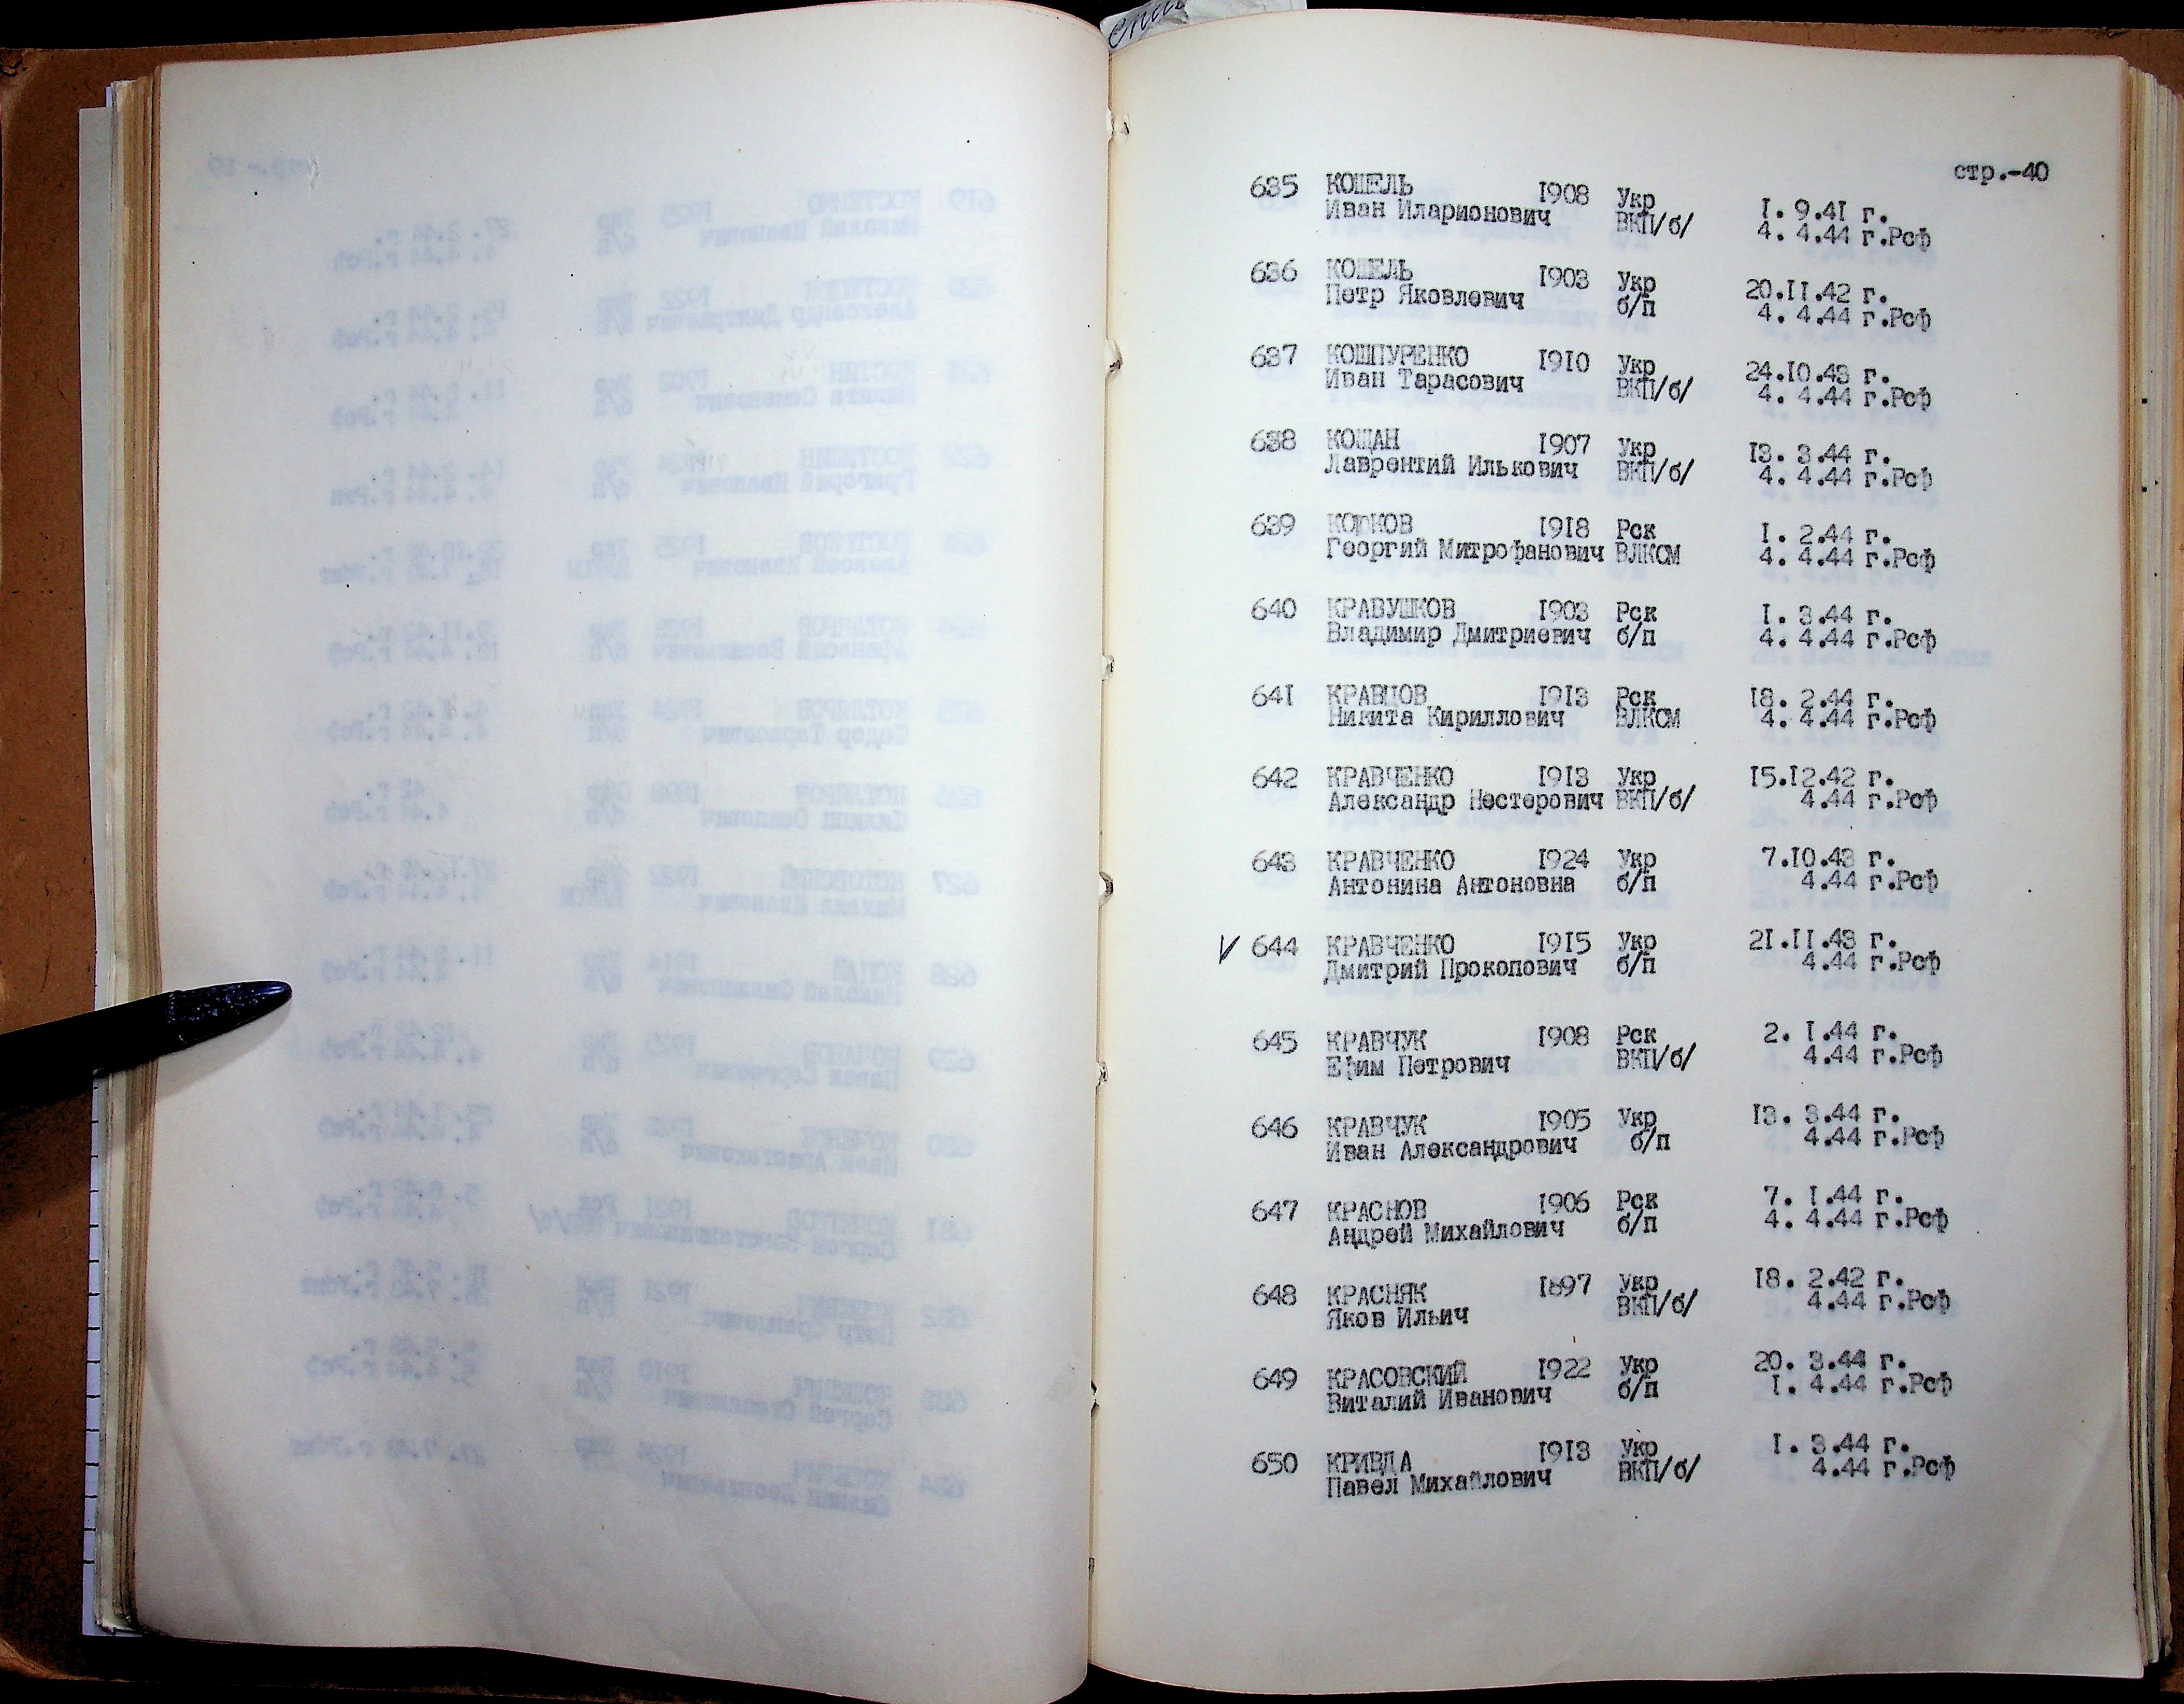 стр.-40
635 КОШЕЛЬ 1908 Укр 1. 9.41 г.
Иван Иларионович ВКП/б/ 4. 4.44 г.Рсф
636 КОШЕЛЬ 1903 Укр 20.11.42 г.
Петр Яковлевич б/п 4. 4.44 г.Рсф
637 КОШПУРЕНКО 1910 Укр 24.10.43 г.
Иван Тарасович ВКП/б/ 4. 4.44 г.Рсф
638 КОЩАН 1907 Укр 13. 3.44 г.
Лаврентий Илькович ВКП/б/ 4. 4.44 г.Рсф
639 1918 Рск 1. 2.44 г.
Георгий Митрофанович ВЛКСМ 4. 4.44 г.Рсф
640 КРАВУШКОВ 1903 Рск 1. 3.44 г.
Владимир Дмитриевич б/п 4. 4.44 г.Рсф
641 КРАВЦОВ 1913 Рск 18. 2.44 г.
Никита Кириллович ВЛКСМ 4. 4.44 г.Рсф
642 КРАВЧЕНКО 1913 Укр 15.12.42 г.
Александр Нестерович ВКП/б/ 4.44 г.Рсф
643 КРАВЧЕНКО 1924 Укр 7.10.43 г.
Антонина Антоновна б/п 4.44 г.Рсф
V 644 КРАВЧЕНКО 1915 Укр 21.11.43 г.
Дмитрий Прокопович б/п 4.44 г.Рсф
645 КРАВЧУК 1908 Рск 2. 1.44 г.
Ефим Петрович ВКП/б/ 4.44 г.Рсф
646 КРАВЧУК 1905 Укр 13. 3.44 г.
Иван Александрович б/п 4.44 г.Рсф
647 КРАСНОВ 1906 Рск 7. 1.44 г.
Андрей Михайлович б/п 4. 4.44 г.Рсф
648 КРАСНЯК 1897 Укр 18. 2.42 г.
Яков Ильич ВКП/б/ 4.44 г.Рсф
649 КРАСОВСКИЙ 1922 Укр 20. 3.44 г.
Виталий Иванович б/п 1. 4.44 г.Рсф
650 КРИВДА 1913 Укр 1. 3.44 г.
Павел Михайлович ВКП/б/ 4.44 г.Рсф